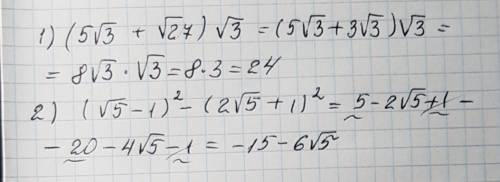 1) (5√3 + √27) √3 = (5√3 + 3√3) √3 =
= 8√3 · √3 = 8 · 3 = 24
2) (√5 - 1)² - (2√5 + 1)² = 5 - 2√5 + 1 -
- 20 - 4√5 - 1 = -15 - 6√5